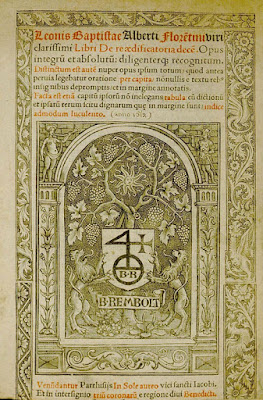 Leonis Baptistae Alberti Florētini viri
clarissimi Libri De re ædificatoria decē. Opus
integrū et absolutū: diligenterq; recognitum.
Distinctum est autē nuper opus ipsum totum: quod antea
peruia legebatur oratione per capita: nōnullis e textu
nig nibus depromptus: et in margine annotatis.
Facta est etiā capitū ipsorū nō inelegans tabula cū dictionū
et ipsarū rerum scitu dignarum que in margine sunt indice
admodum luculento.
B R
B·REMBOLT
Venūdantur Parrhisijs In Sole aureo vici sancti Iacobi.
Et in intersignio triū coronarū e regione diui Benedicti.